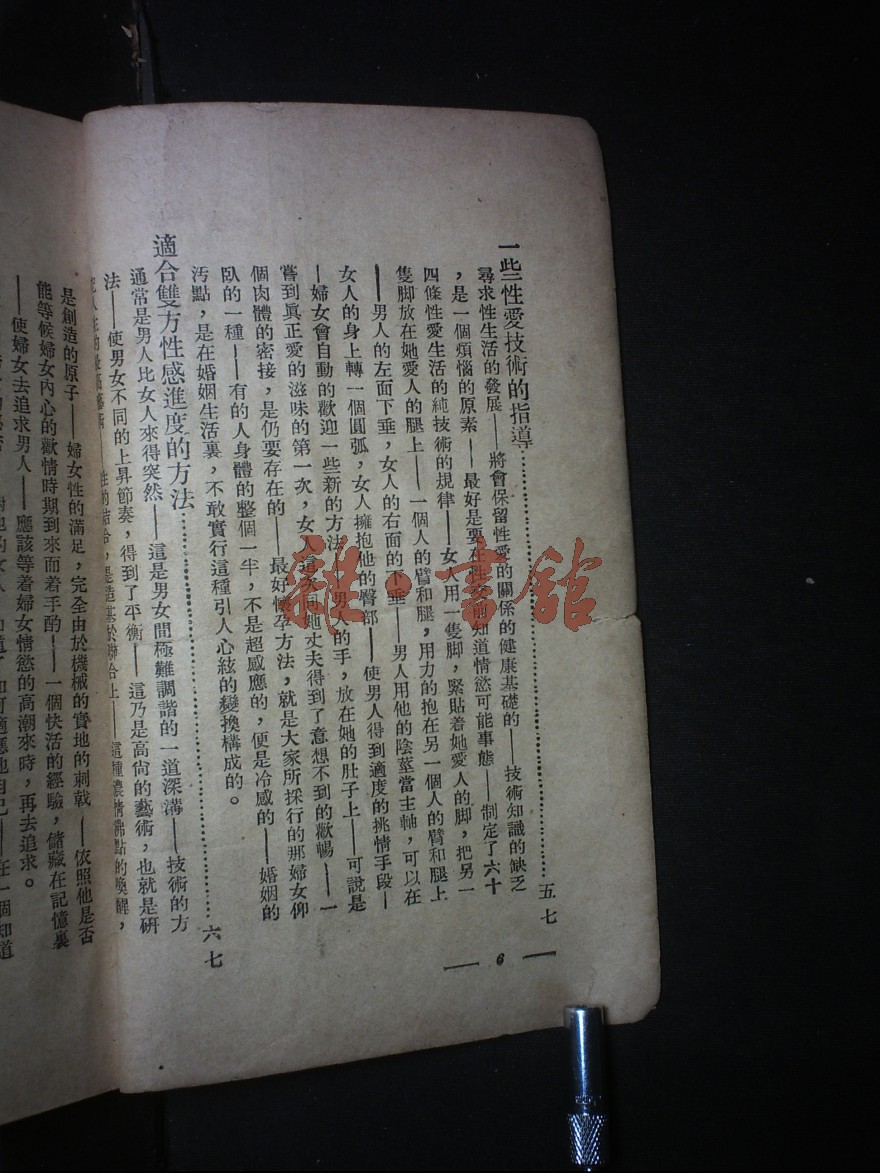 一些性愛技術的指導……五七
尋求性生活的發展——將會保留性愛的關係的健康基礎的——技術知識的缺乏
，是一個煩惱的原素——最好是要在性交前知道情慾可能事態——制定了六十
四條性愛生活的純技術的規律——女人用一隻脚，緊貼着她愛人的脚，把另一
隻脚放在她愛人的腿上——一個人的臂和腿，用力的抱在另一個人的臂和腿上
——男人的左面下垂，女人的右面的下垂——男人用他的陰莖當主軸，可以在
女人的身上轉一個圓弧，女人擁抱他的臀部——使男人得到適度的挑情手段—
—婦女會自動的歡迎一些新的方法——男人的手，放在她的肚子上——可說是
嘗到眞正愛的滋味的第一次，女人這次同她丈夫得到了意想不到的歡暢——一
個肉體的密接，是仍要存在的——最好懷孕方法，就是大家所採行的那婦女仰
臥的一種——有的人身體的整個一半，不是超感應的，便是冷感的——婚姻的
汚點，是在婚姻生活裏，不敢實行這種引人心絃的變換構成的。
適合雙方性感進度的方法……六七
通常是男人比女人來得突然——這是男女間極難調諧的一道深溝——技術的方
法——使男女不同的上昇節奏，得到了平衡——這乃是高尙的藝術，也就是研
性的結合，是造基於聯合上——這種濃情沸點的喚醒，
是創造的原子——婦女性的滿足，完全由於機械的實地的刺戟——依照他是否
能等候婦女內心的歡情時期到來而着手酌——一個快活的經驗，儲藏在記憶裏
——使婦女去追求男人——應該等着婦女情慾的高潮來時，再去追求。
— 6 —
雜·書館